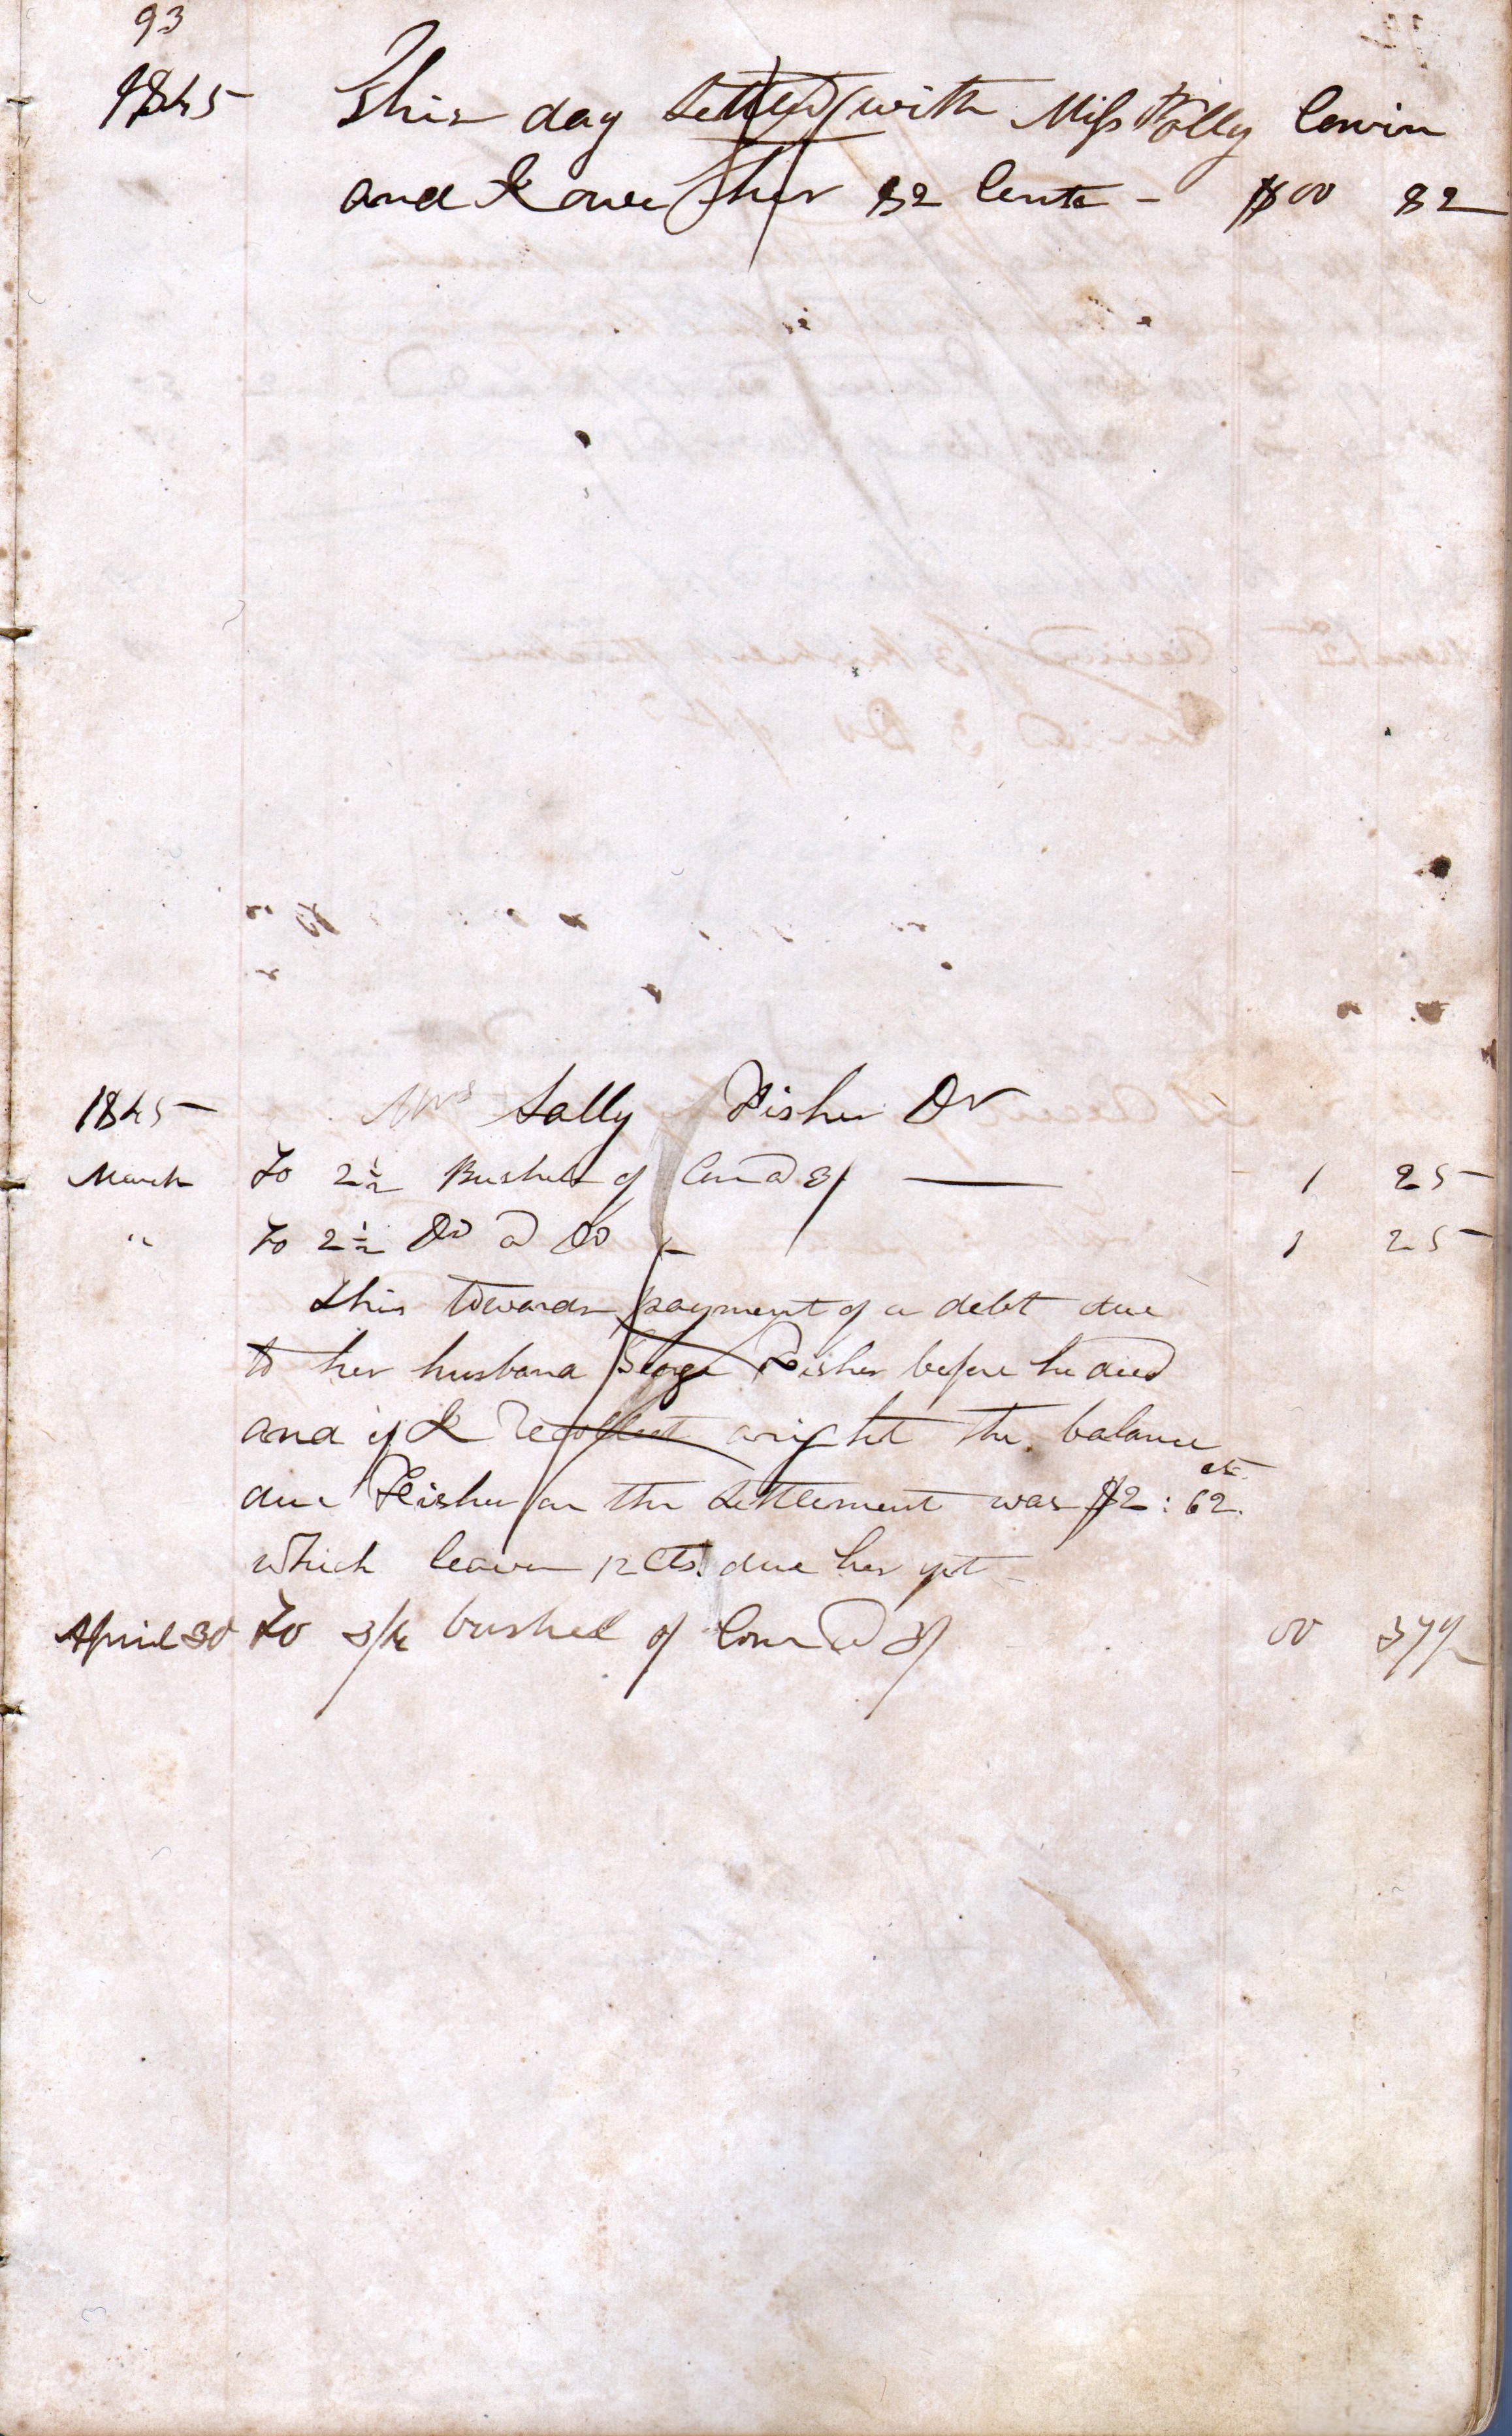 93
1845 This day settled with Miss Polly Corwin
and I owe her 82 Cents - $00 82
1845 Mrs Sally Fisher Dr
March To 2½ Bushels of Corn @ 3/ 1 25
" To 2½ Do @ Do 1 25
this towards payment of a debt due
to her husband George Fisher before he died
and if I recollect aright the balance
due Fisher on the settlement was $2:62 cts.
which leaves 12 cts. due her yet
April 30 To 3/4 bushel of Corn @ 3/ 00 37½